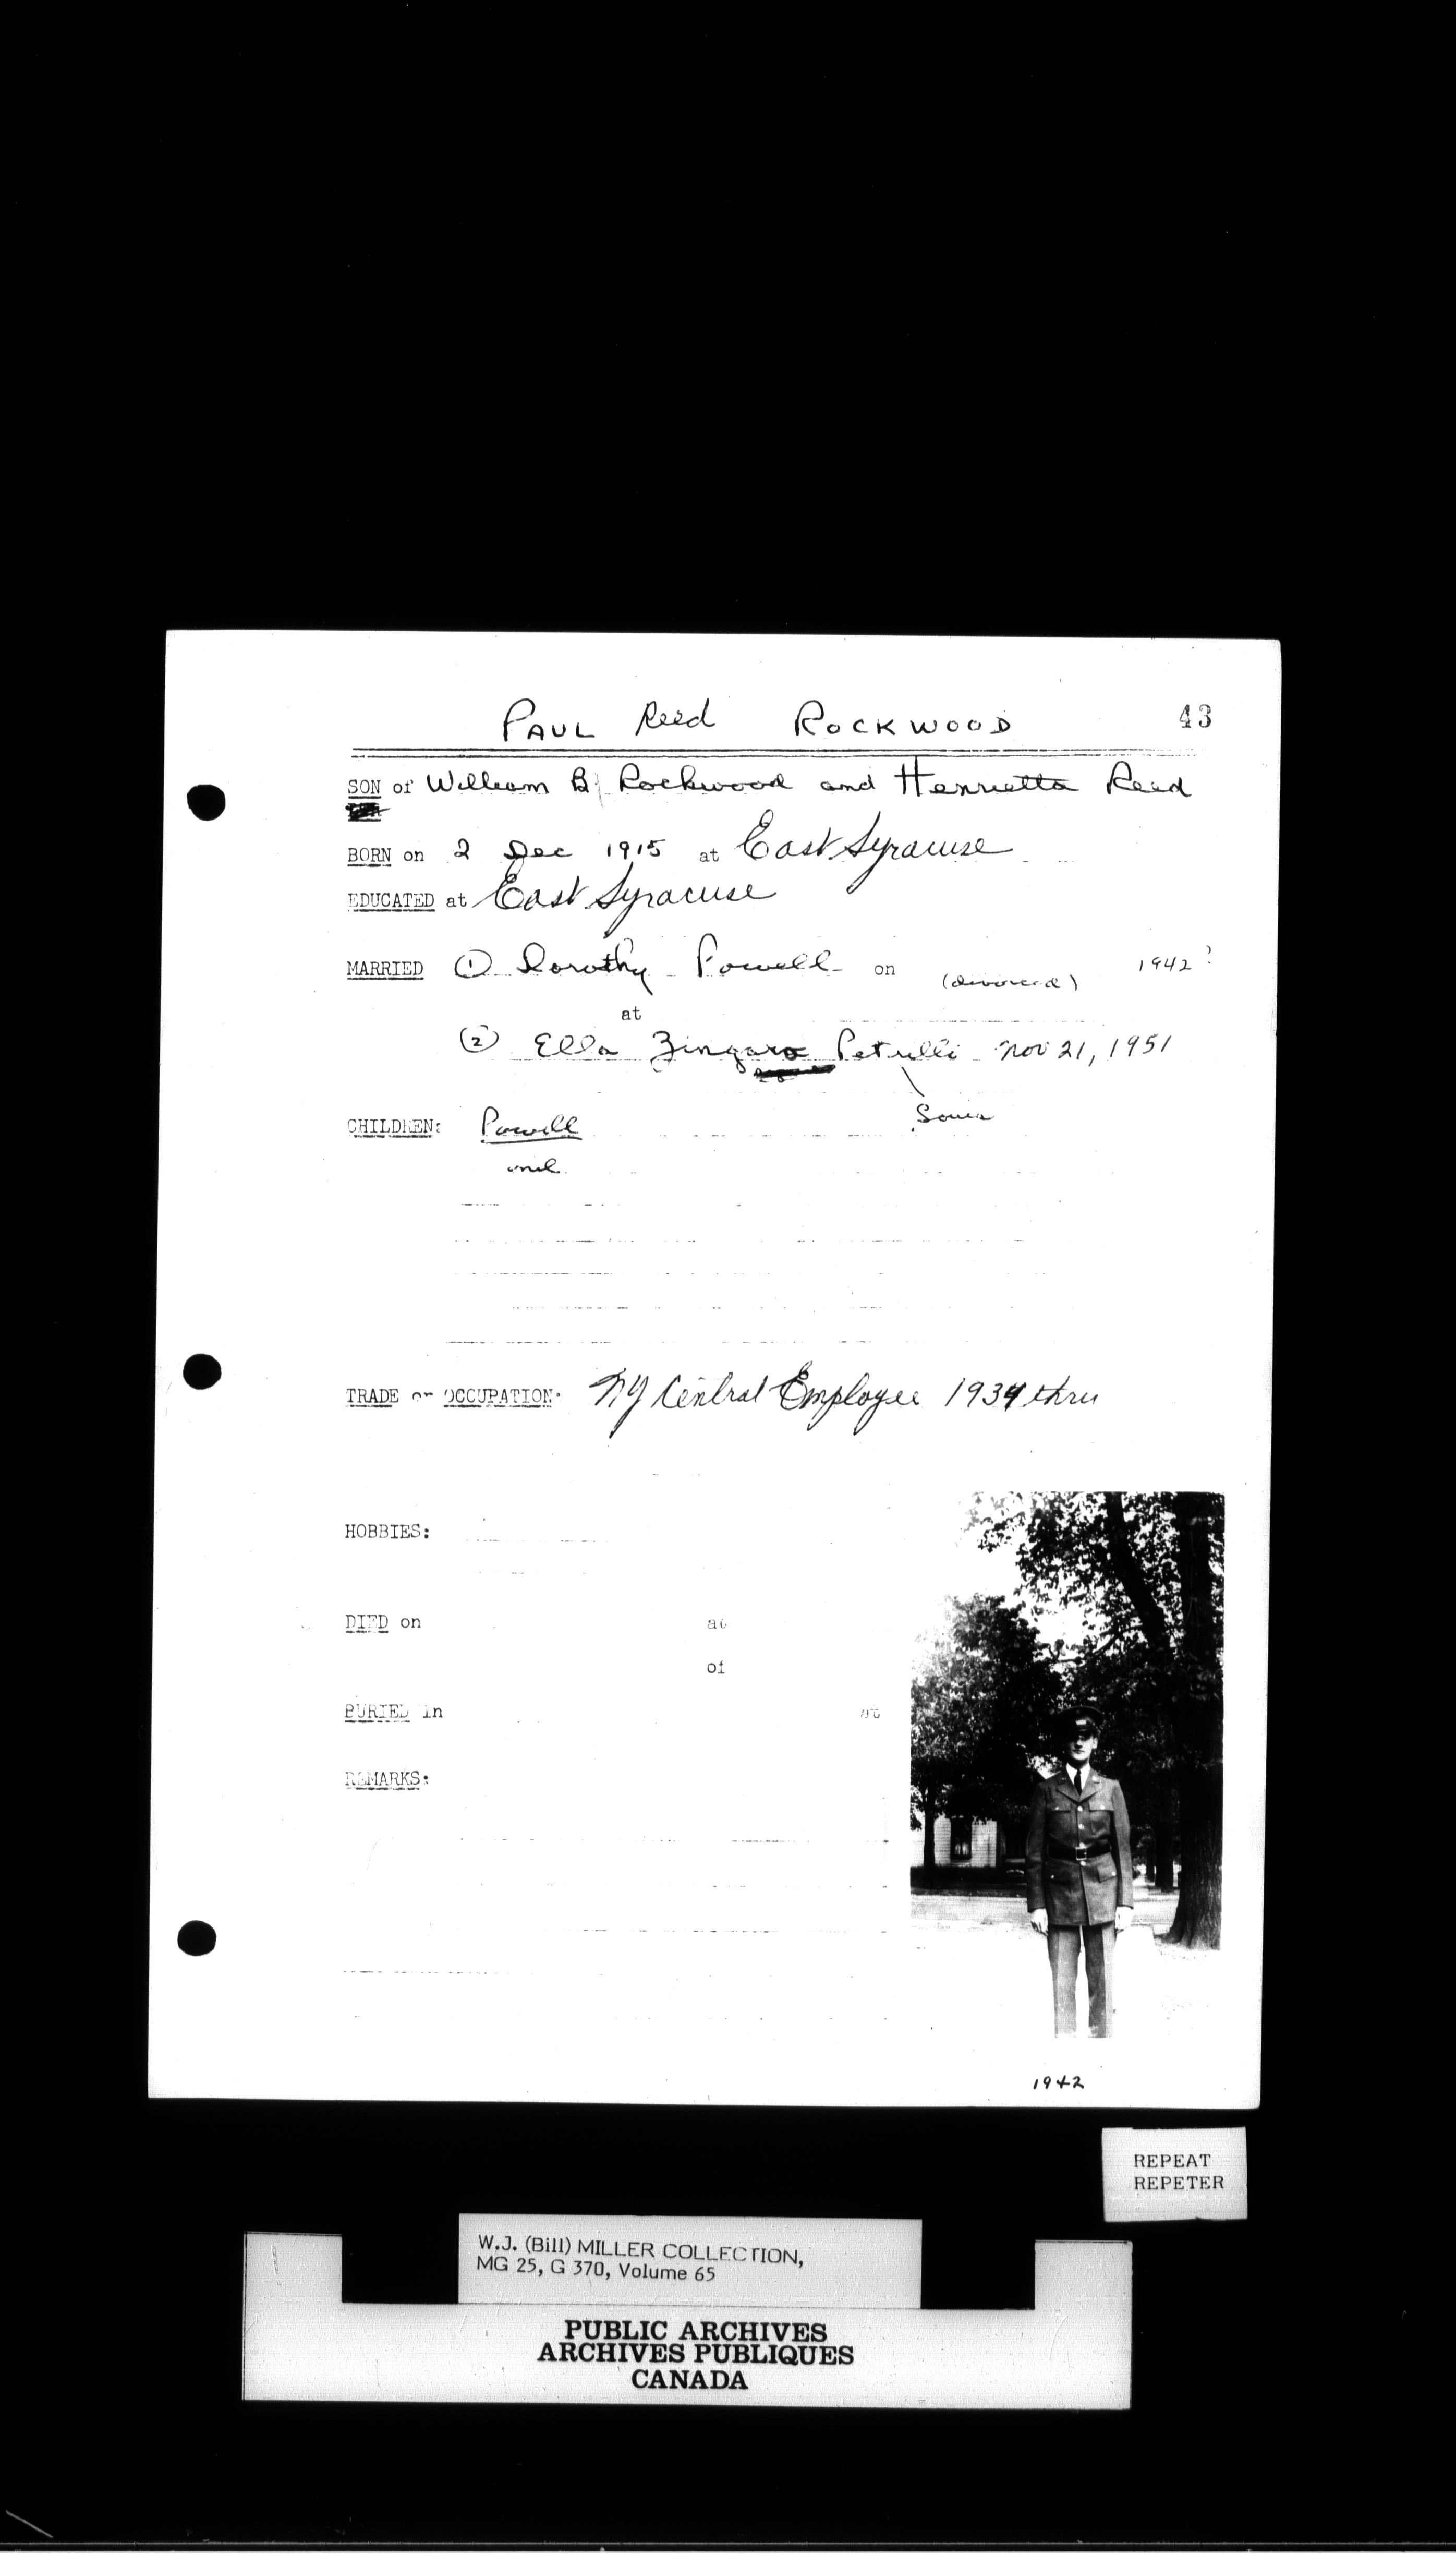 PAUL Reed ROCKWOOD 43
SON of William B. Rockwood and Henrietta Reed
BORN on 2 Dec 1915 at East Syracuse
EDUCATED at East Syracuse
MARRIED ① Dorothy Powell on (divorced) 1942?
at
② Ella Zingaro Petrilli Nov 21, 1951
CHILDREN: Powell
TRADE or OCCUPATION: NY Central Employee 1934 thru
HOBBIES:
DIED on at
of
BURIED in at
REMARKS:
1942
REPEAT
REPETER
W.J. (Bill) MILLER COLLECTION,
MG 25, G 370, Volume 65
PUBLIC ARCHIVES
ARCHIVES PUBLIQUES
CANADA